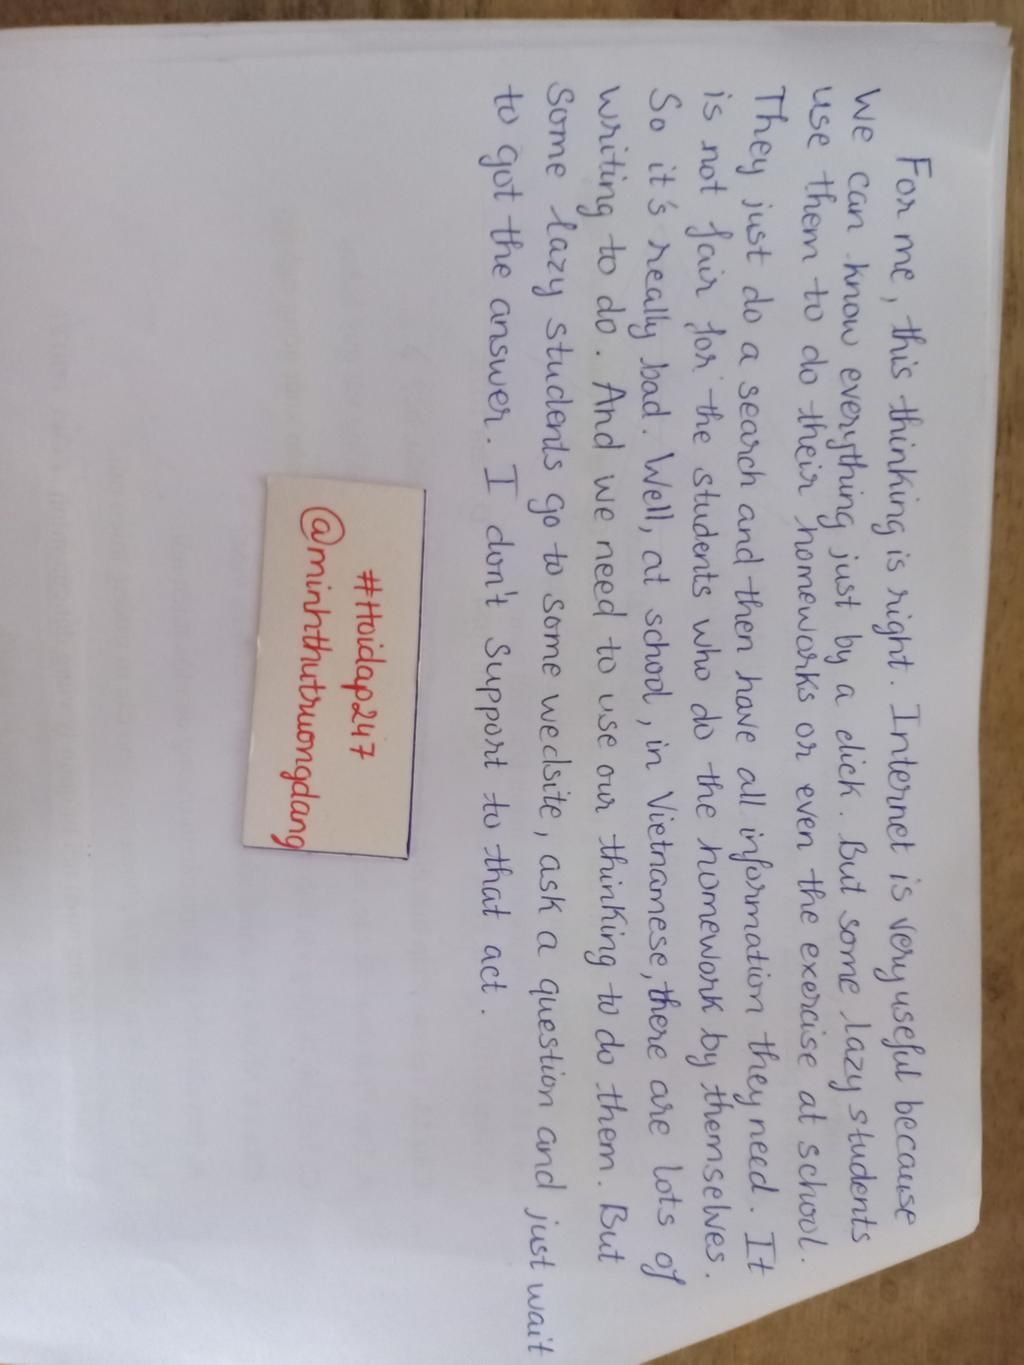 For me, this thinking is right. Internet is very useful because
We can know everything just by a click. But some lazy students
use them to do their homeworks or even the exercise at school.
They just do a search and then have all information they need. It
is not fair for the students who do the homework by themselves.
So it's really bad. Well, at school, in Vietnamese, there are lots of
writing to do. And we need to use our thinking to do them. But
Some lazy students go to some wedsite, ask a question and just wait
to got the answer. I don't support to that act.
#Hoidap247
@minhthutruongdang